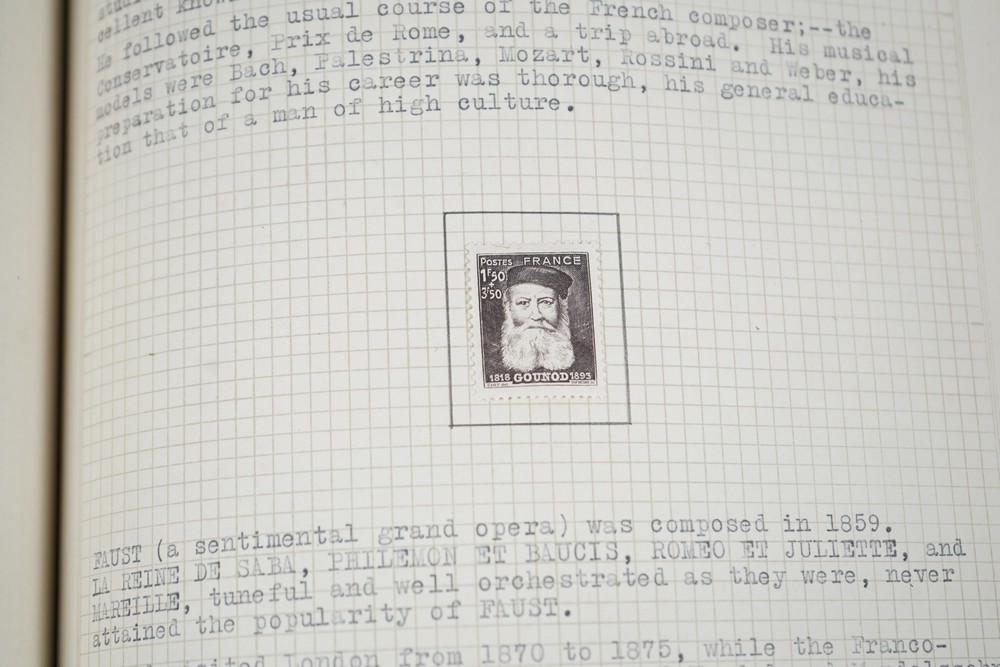 cellent
He followed the usual course of the French composer;--the
Conservatoire, Prix de Rome, and a trip abroad. His musical
models were Bach, Palestrina, Mozart, Rossini and Weber, his
preparation for his career was thorough, his general educa-
tion that of a man of high culture.
POSTES FRANCE
1F50
+
3F50
1818 GOUNOD 1893
FAUST (a sentimental grand opera) was composed in 1859.
LA REINE DE SABA, PHILEMON ET BAUCIS, ROMEO ET JULIETTE, and
MAREILLE, tuneful and well orchestrated as they were, never
attained the popularity of FAUST.
London from 1870 to 1875, while the Franco-